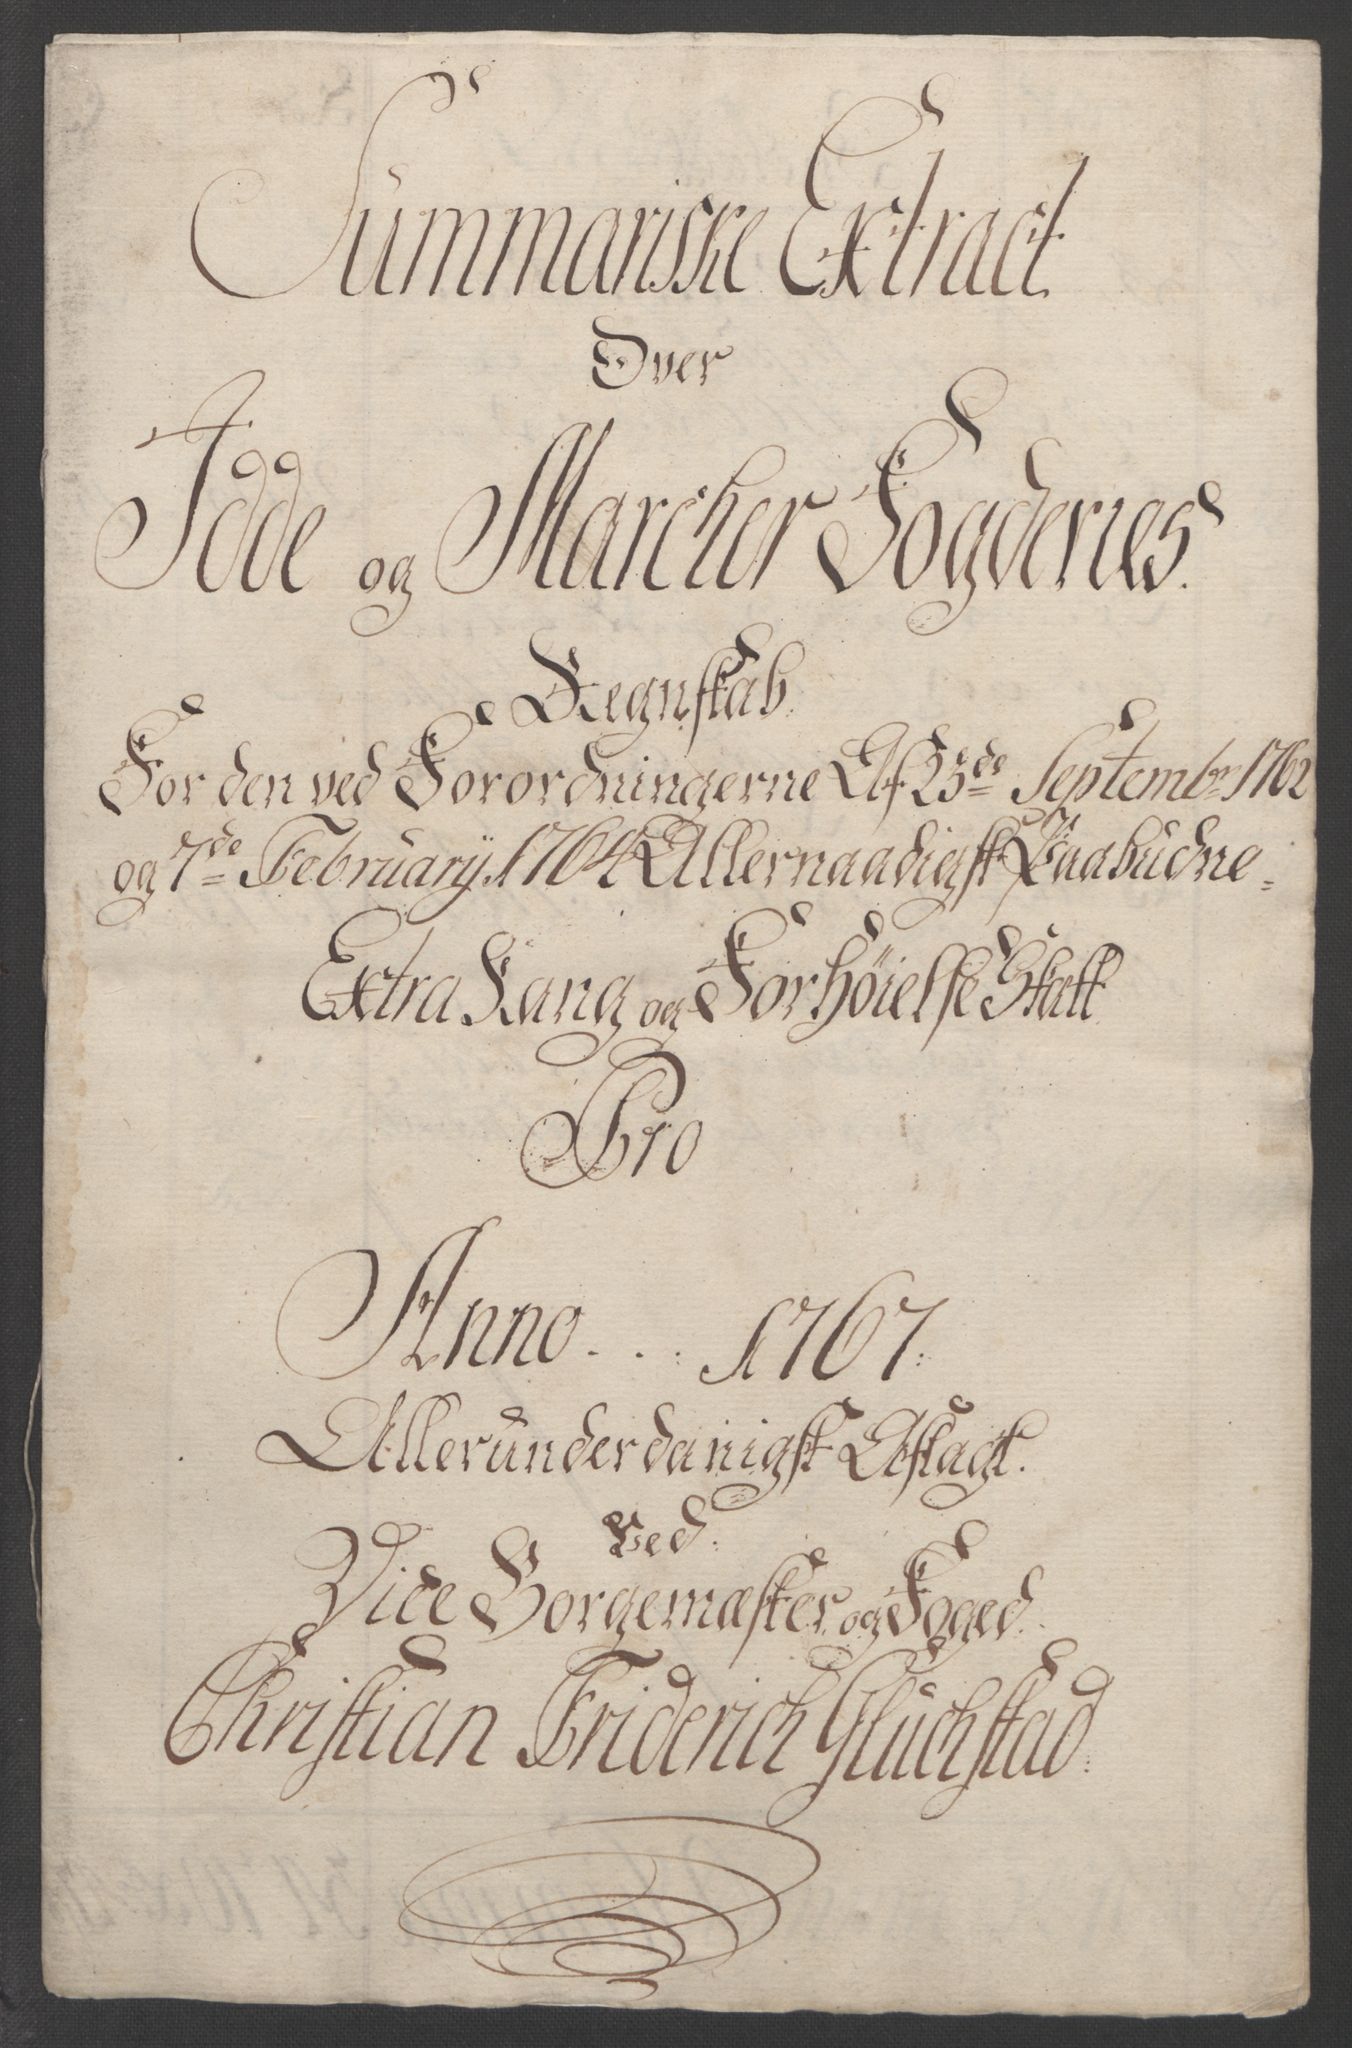 Summariske Extract
Over
Idde og Marcher Fogderies
Regnskab
For den ved Forordningerne Af 23de Septembr 1762
og 7de February 1764 Allernaadigst Paabudne
Extra Rang og Forhöielse Skatt
Pro
Anno . . . 1767.
Allerunderdanigst Aflagt.
Ved.
Vice Borgemæster og Foged.
Christian Friderich Gluchstad.